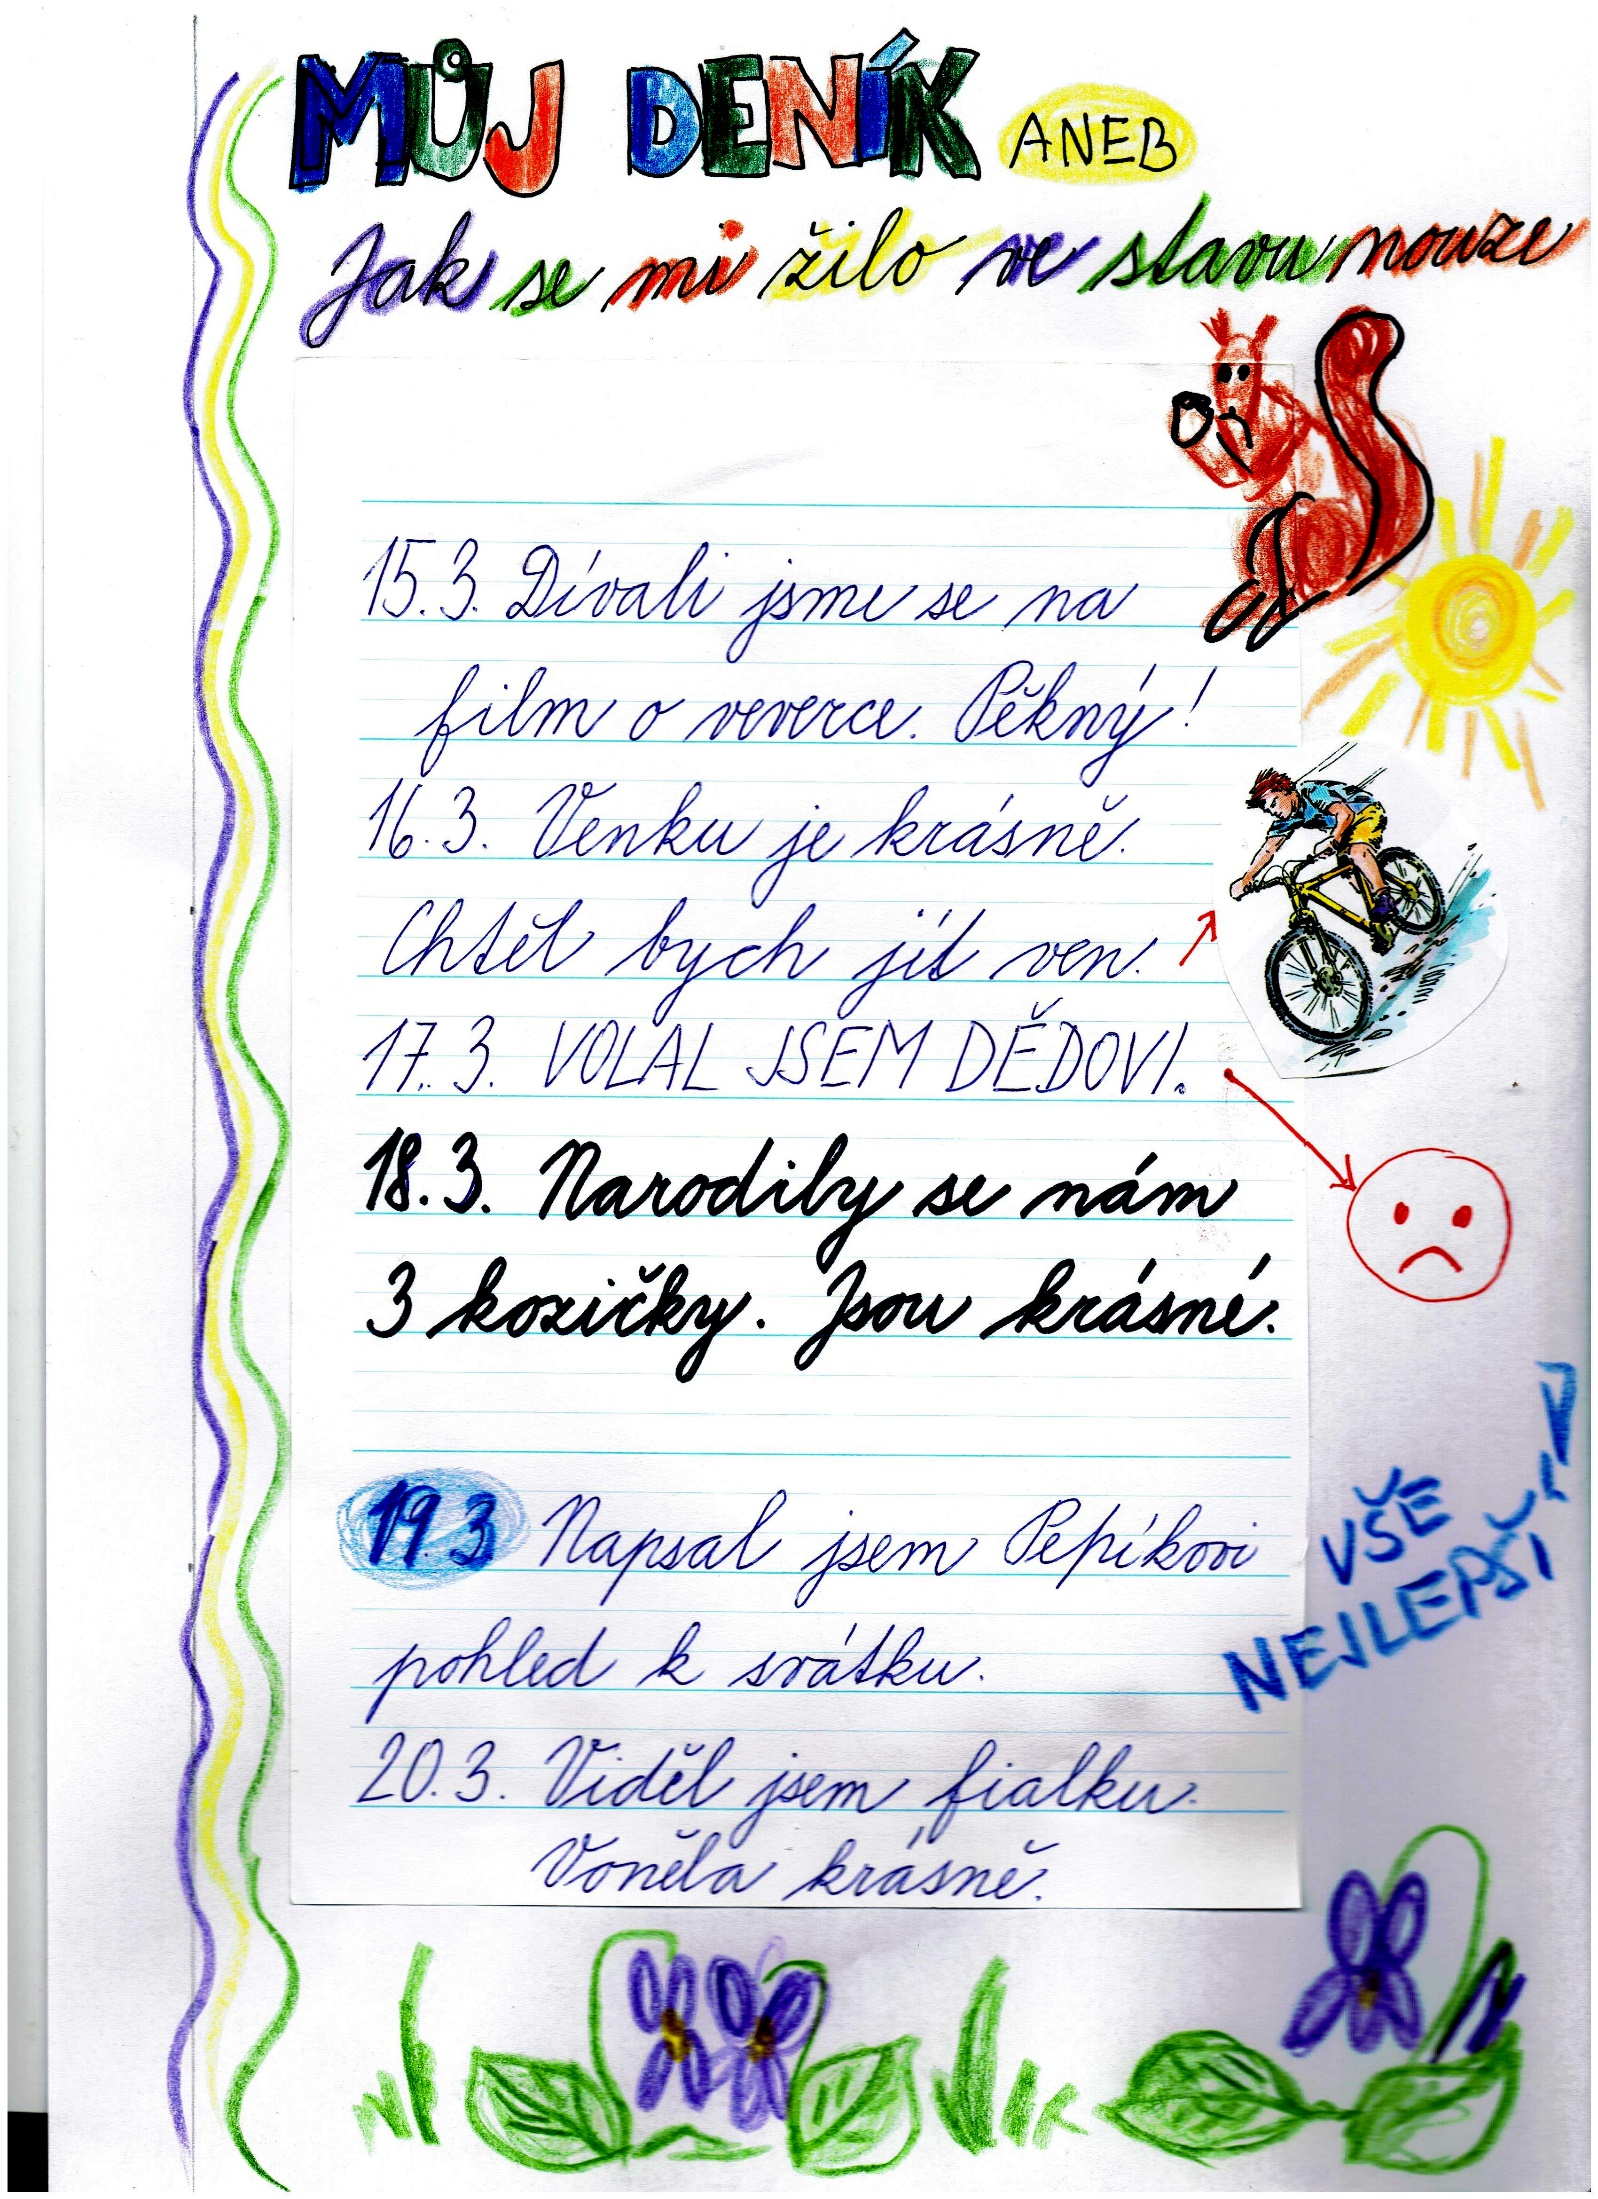 MŮJ DENÍK ANEB
Jak se mi žilo ve stavu nouze
15.3. Dívali jsme se na
film o veverce. Pěkný!
16.3. Venku je krásně.
Chtěl bych jít ven.
17.3. VOLAL JSEM DĚDOVI.
18.3. Narodily se nám
3 kozičky. Jsou krásné.
19.3 Napsal jsem Pepíkovi
pohled k svátku.
VŠE
NEJLEPŠÍ!
20.3. Viděl jsem fialku.
Voněla krásně.